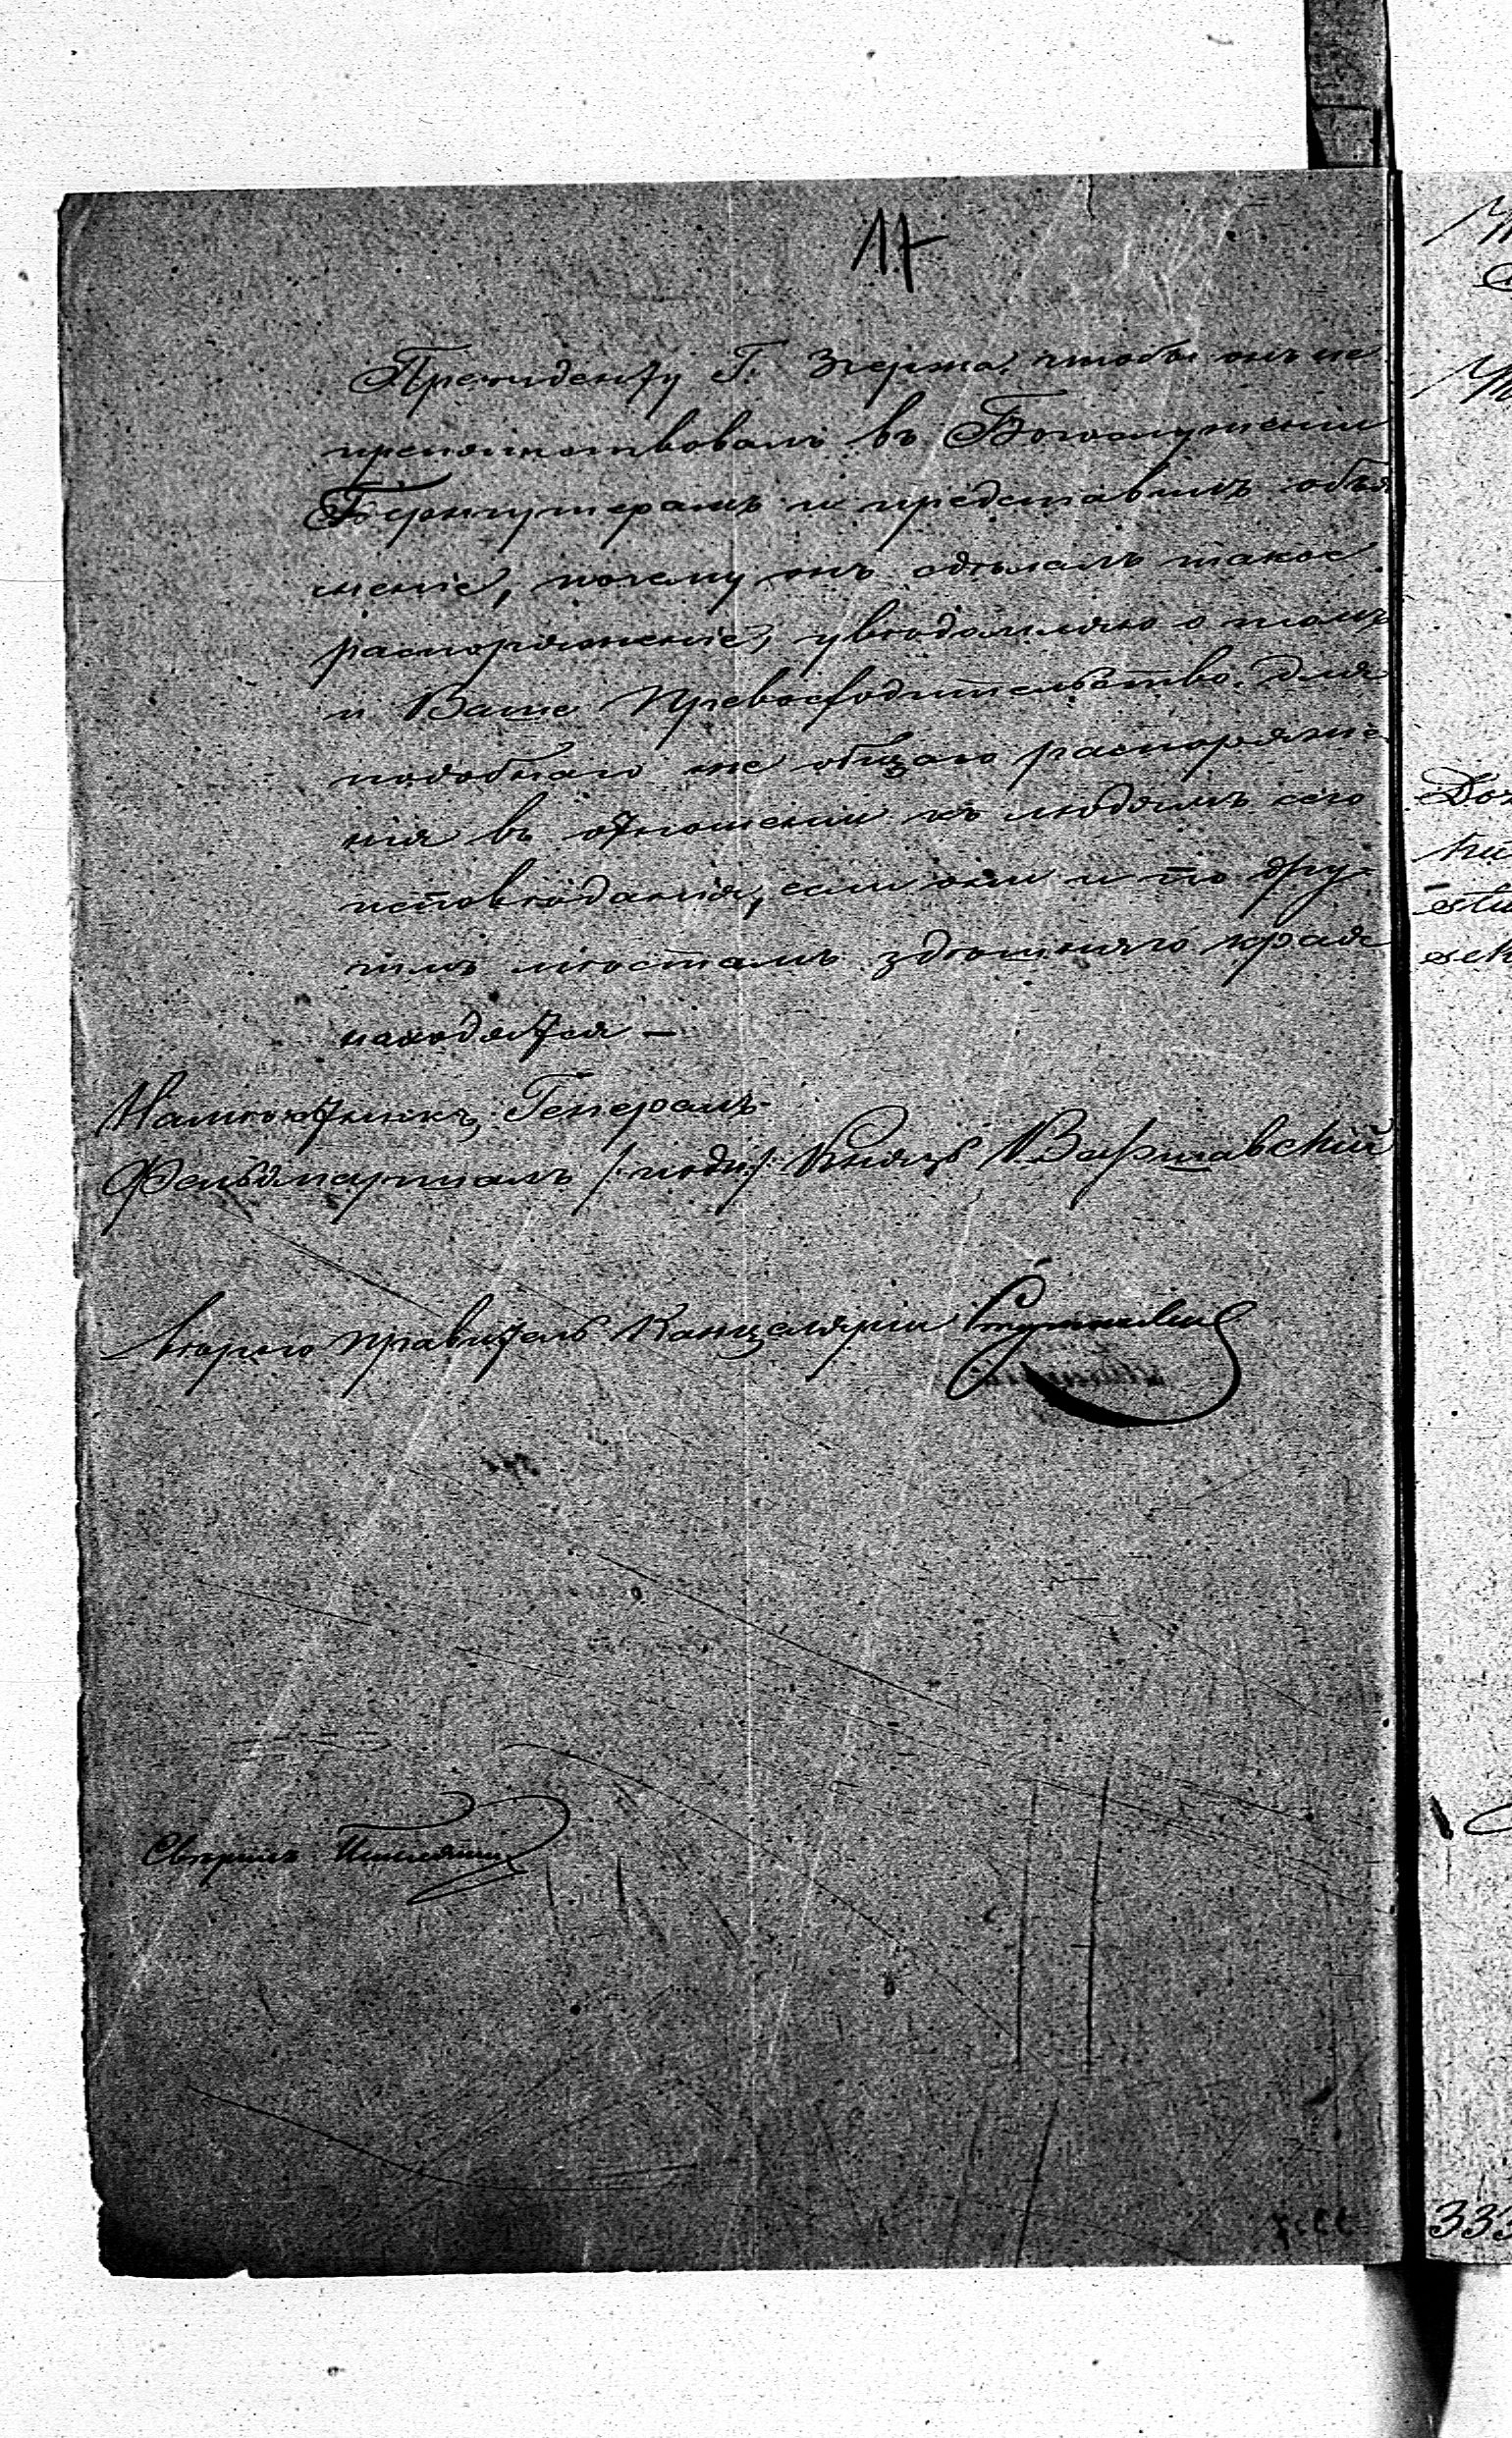 17
Президенту Г. Згержа, чтобы онъ не
препятствовалъ въ Богослуженіи
Гернгутерамъ и представилъ объя
сненіе, почему онъ сдѣлалъ такое
распоряженіе, увѣдомляю о томъ
и Ваше Превосходительство для
подобнаго же общаго распоряже
нія въ отношеніи къ людямъ сего
исповѣданія, если они и по дру-
гимъ мѣстамъ здѣшняго края
находятся —
Намѣстникъ, Генералъ-
Фельдмаршалъ /:подп:/ Князь Варшавскій
правитель Канцеляріи
Свѣрилъ
333